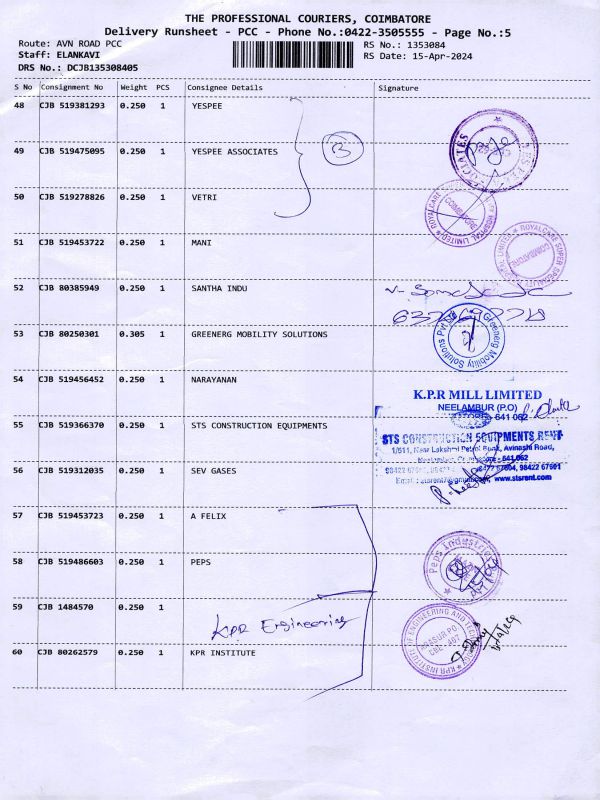 THE PROFESSIONAL COURIERS, COIMBATORE
Delivery Runsheet - PCC - Phone No.:0422-3505555 - Page No.:5
Route: AVN ROAD PCC
RS No.: 1353084
Staff: ELANKAVI
RS Date: 15-Apr-2024
DRS No.: DCJB135308405
S No Consignment No Weight PCS Consignee Details Signature
48 CJB 519381293 0.250 1 YESPEE
49 CJB 519475095 0.250 1 YESPEE ASSOCIATES
3
50 CJB 519278826 0.250 1 VETRI
51 CJB 519453722 0.250 1 MANI
COIMBATORE
ROYALCARE SUPER SPECIALITY HOSPITAL LIMITED
COIMBATORE
52 CJB 80385949 0.250 1 SANTHA INDU
53 CJB 80250301 0.305 1 GREENERG MOBILITY SOLUTIONS
Greenerg Mobility Solutions Pvt Ltd
54 CJB 519456452 0.250 1 NARAYANAN
K.P.R MILL LIMITED
NEELAMBUR (P.O)
641 062
55 CJB 519366370 0.250 1 STS CONSTRUCTION EQUIPMENTS
STS CONSTRUCTION EQUIPMENTS RENT
1/511, Near Lakshmi Petrol Bunk, Avinashi Road,
Neelambur, Coimbatore - 641 062
98422 67504, 98422 67501
www.stsrent.com
56 CJB 519312035 0.250 1 SEV GASES
57 CJB 519453723 0.250 1 A FELIX
58 CJB 519486603 0.250 1 PEPS
Peps Industries
59 CJB 1484570 0.250 1
KPR Engineering
60 CJB 80262579 0.250 1 KPR INSTITUTE
KPR INSTITUTE OF ENGINEERING AND TECHNOLOGY
ARASUR PO.
CBE-407